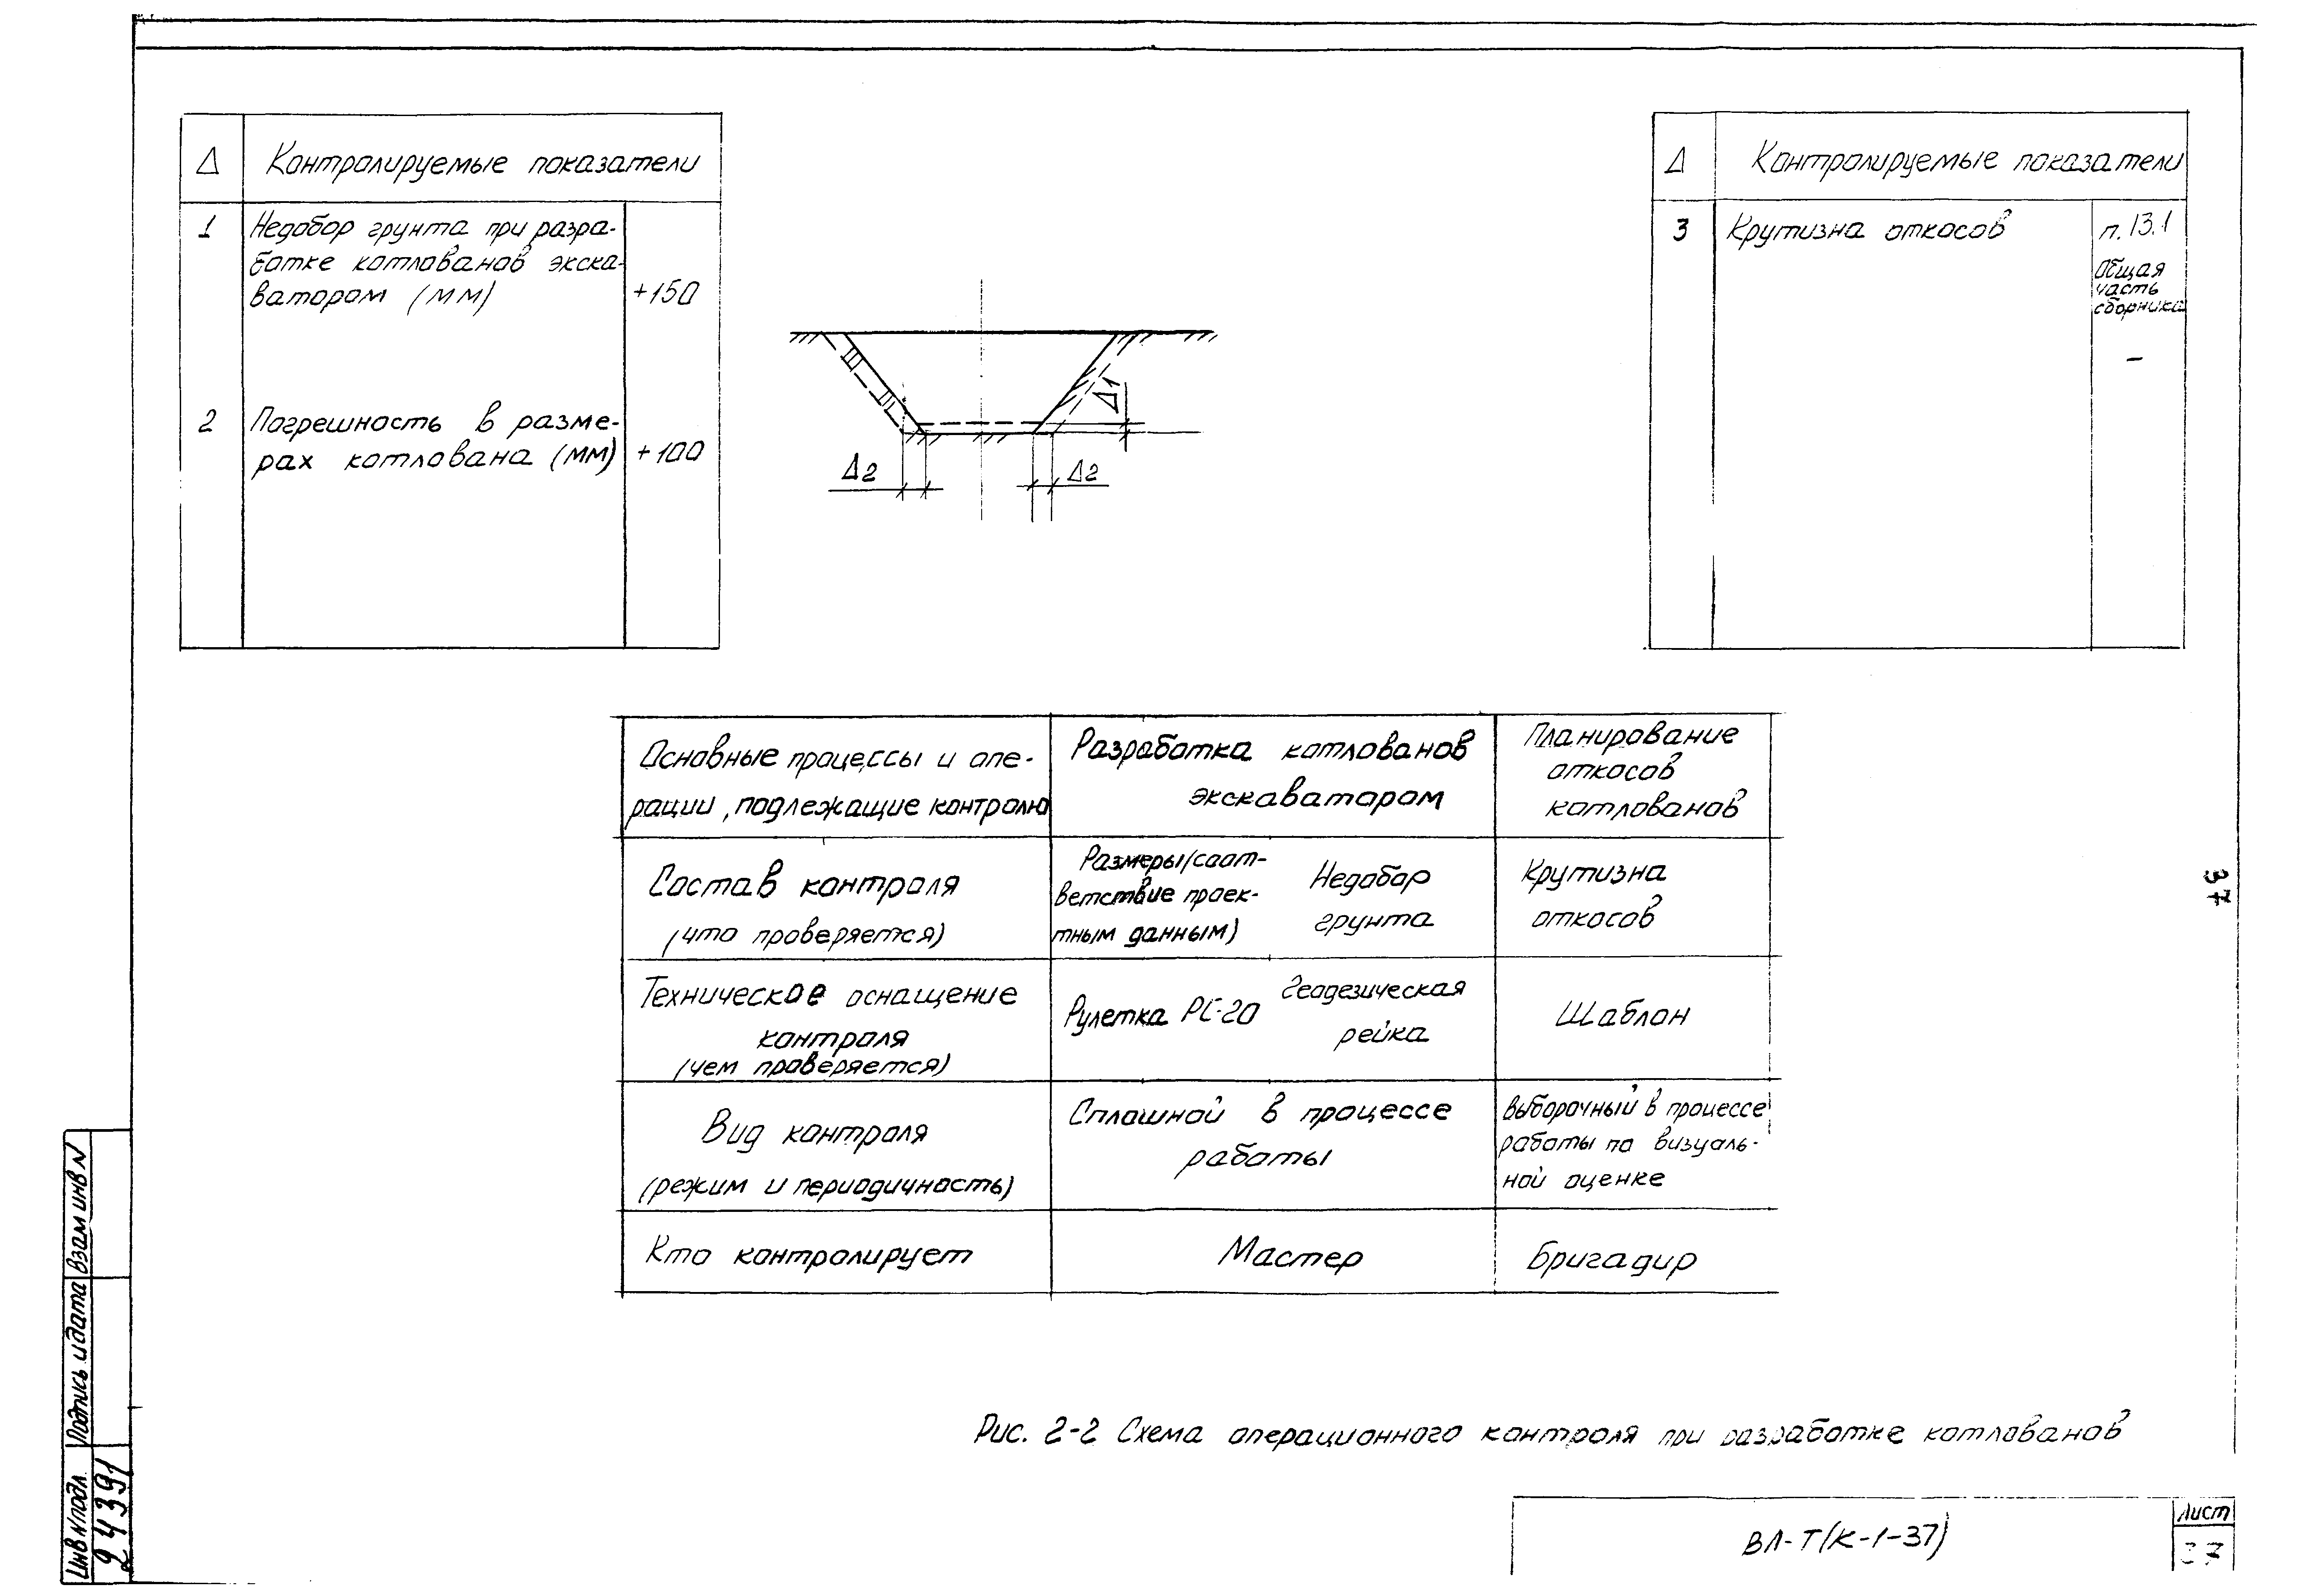 Δ Контролируемые показатели
1 Недобор грунта при разра-
ботке котлованов экска-
ватором (мм) +150
2 Погрешность в разме-
рах котлована (мм) +100
Δ1
Δ2 Δ2
Δ Контролируемые показатели
3 Крутизна откосов п. 13.1
Общая
часть
сборника
–
Основные процессы и опе-
рации, подлежащие контролю
Разработка котлованов
экскаватором
Планирование
откосов
котлованов
Состав контроля
(что проверяется)
Размеры (соот-
ветствие проек-
тным данным)
Недобор
грунта
Крутизна
откосов
Техническое оснащение
контроля
(чем проверяется)
Рулетка РС-20
Геодезическая
рейка
Шаблон
Вид контроля
(режим и периодичность)
Сплошной в процессе
работы
Выборочный в процессе
работы по визуаль-
ной оценке
Кто контролирует
Мастер
Бригадир
37
Рис. 2-2 Схема операционного контроля при разработке котлованов
ВЛ-Т(К-1-37)
Лист
37
Взам инв N
Подпись и дата
Инв N подл.
24391